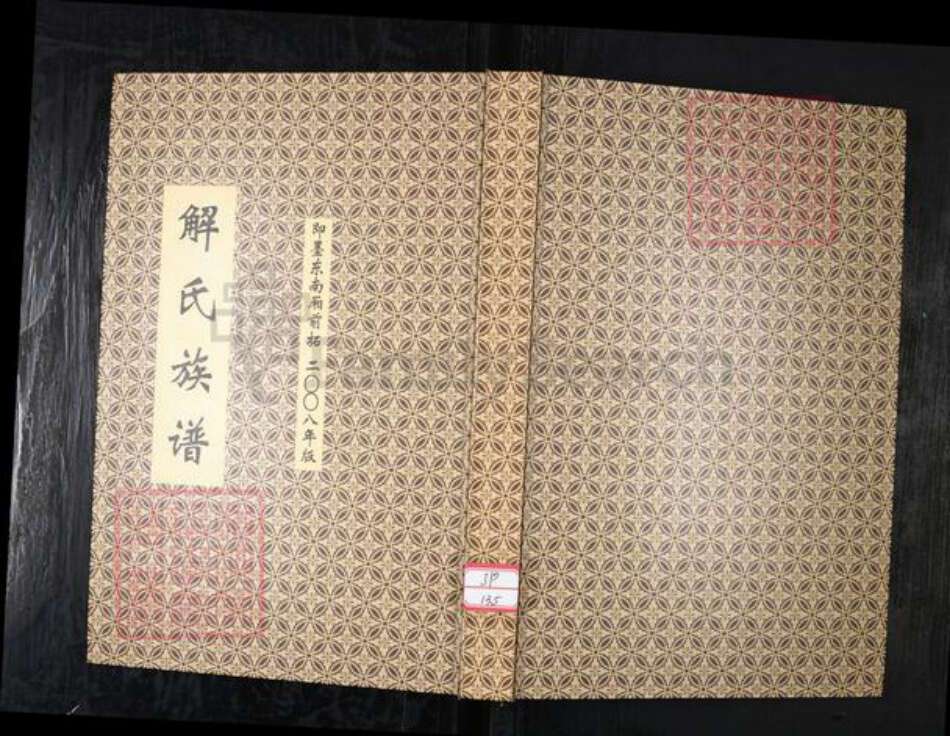 解氏族谱
即墨东南厢前埠 二〇〇八年版
SP
135